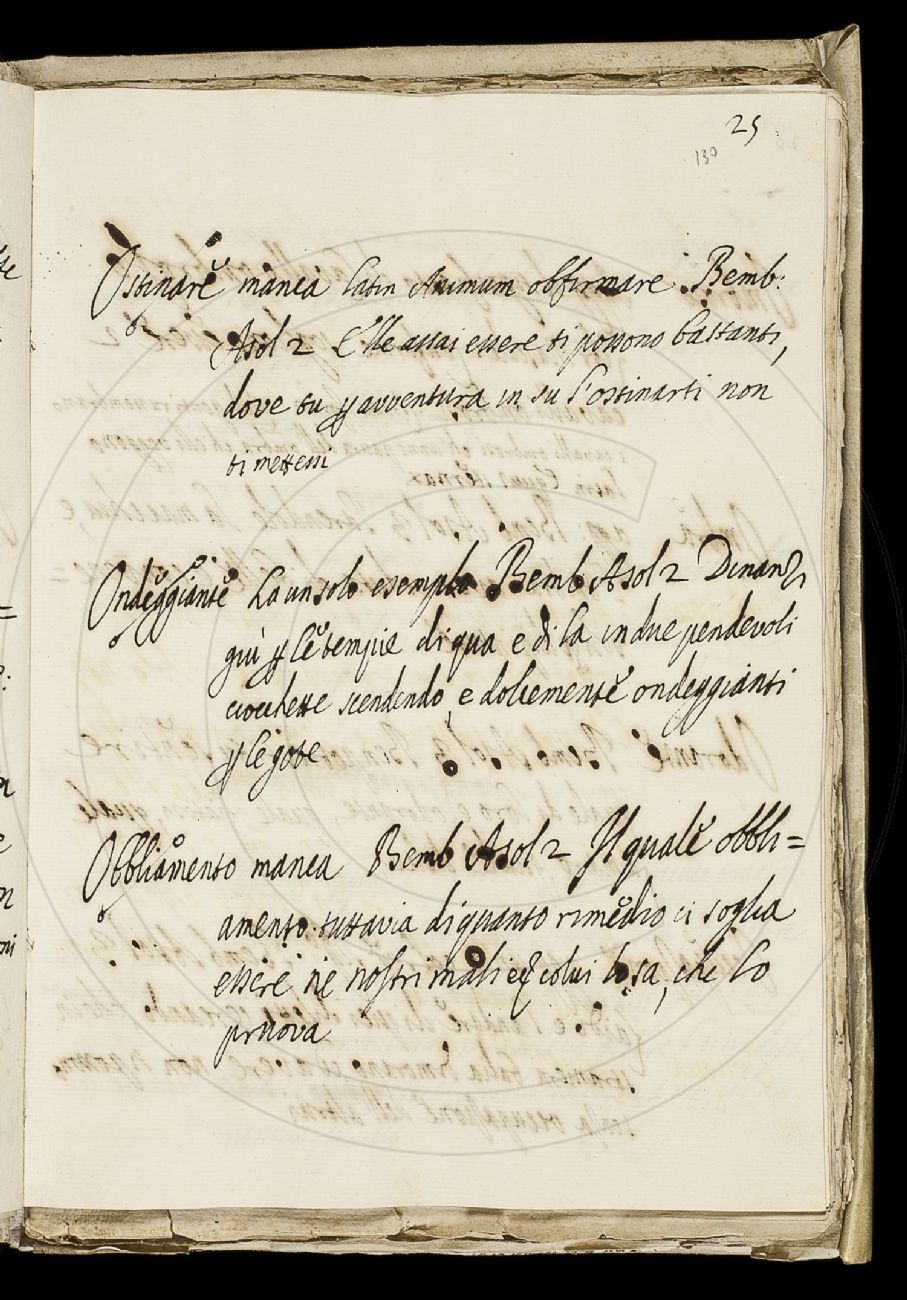 25
130
Ostinare manca latin Animum obfirmare. Bemb:
Asol 2 Elle assai essere ti possono bastanti,
dove tu ꝑ avventura in su l'ostinarti non
ti mettessi
Ondeggiante ha un solo esempio Bemb Asol 2 Dinanzi
giù ꝑ le tempie di qua e di la in due pendevoli
ciocchette scendendo, e dolcemente ondeggianti
ꝑ le gote
Obbliamento manca Bemb Asol 2 Il quale obbli=
amento tuttavia di quanto rimedio ci soglia
essere ne nostri mali colui lo sa, che lo
pruova